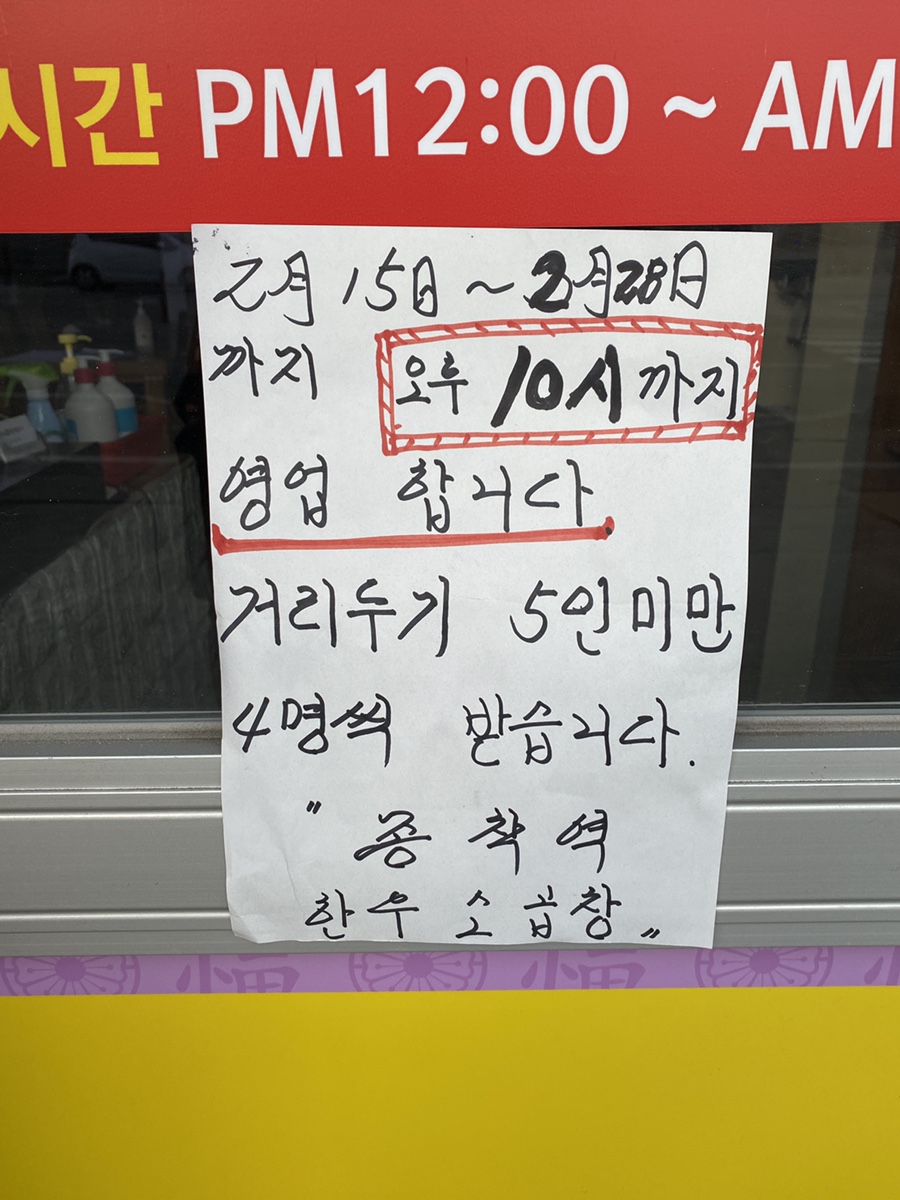 시간 PM12:00 ~ AM
2月 15日 ~ 2月28日
까지 오후 10시까지
영업 합니다
거리두기 5인미만
4명씩 받습니다.
" 종착역
한우 소곱창 "